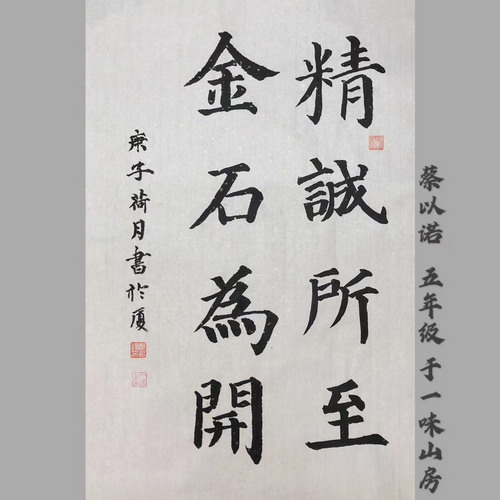 精誠所至
金石為開
庚子荷月書於廈
蔡以诺 五年级 于一味山房